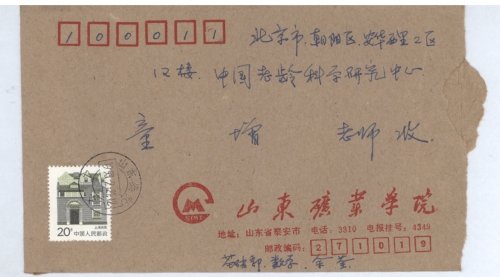 100011
北京市.朝阳区.安华西里2区
12楼.中国老龄科学研究中心
童 老师 收
20分 中国人民邮政
SIMT
山东矿业学院
地址：山东省泰安市 电话：3910 电报挂号：4249
邮政编码：271019
数学